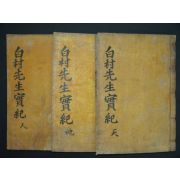 白村先生實紀 天
白村先生實紀 地
白村先生實紀 人